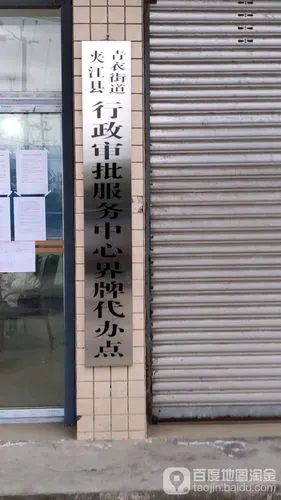 夹江县
青衣街道
行政审批服务中心界牌代办点
百度地图淘金
taojin.baidu.com